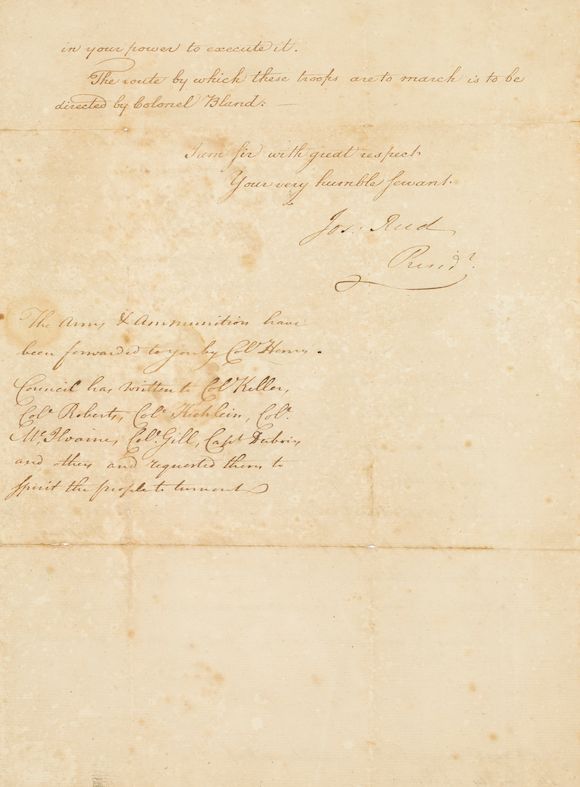 in your power to execute it.
The route by which these troops are to march is to be
directed by Colonel Bland. —
I am sir with great respect
Your very humble sevant.
Jos. Reed
Presid.t
The Arms & Ammunition have
been forwarded to you by Col.o Henry.
Council has written to Col.o Keller,
Col.o Roberts, Col.o Kechlein, Col.o
Mc.Ilvaine, Col.o Gill, Capt
and others and requested them to
spirit the people to turnout